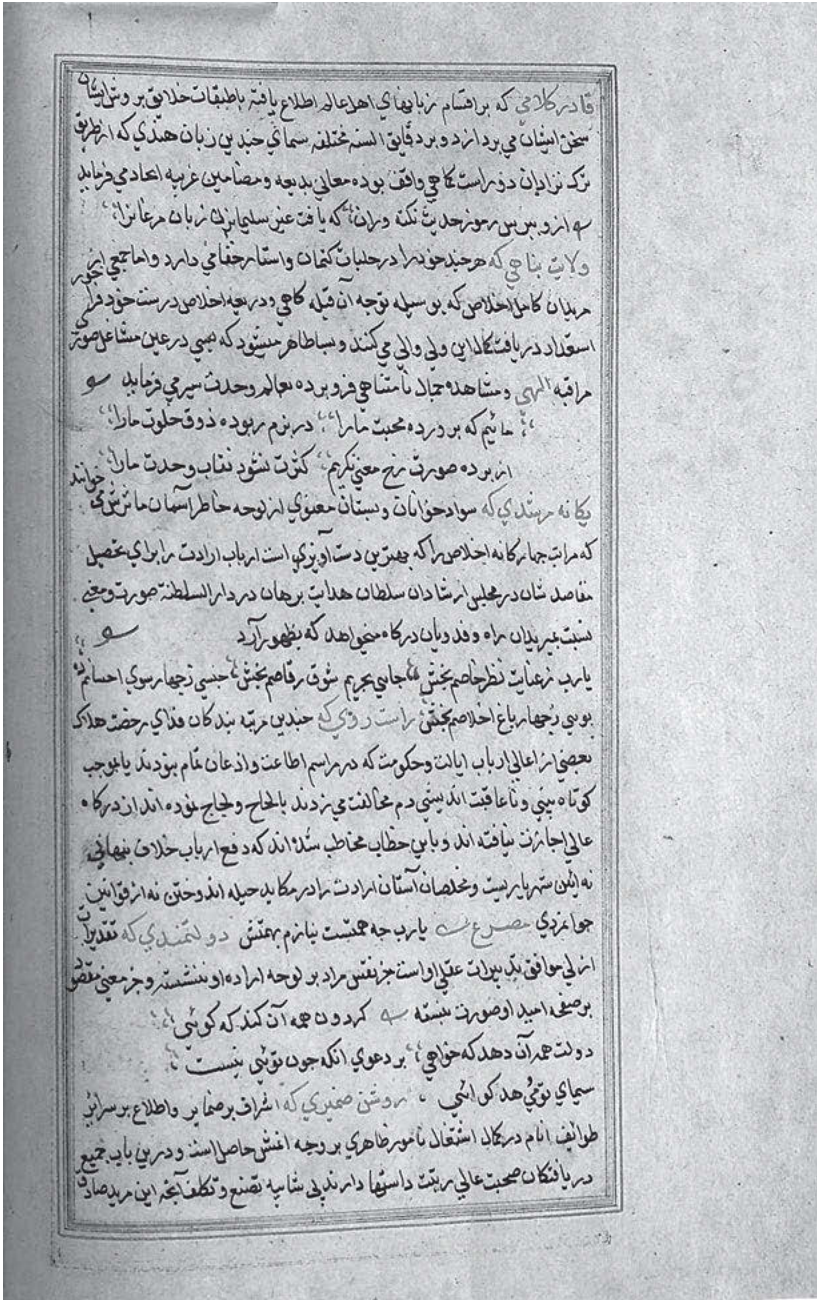 قادر کلامي که بر اقسام زبانهاي اهل عالم اطلاع يافته باطبقات خلايق بر وش ايشان
سخن ايشان مي پردازد و بر دقايق السنه مختلفه سماني چندين زبان هندي که از طريق
ترک نژادان دور است کاهي واقف بوده معاني بديعه و مضامين غريبه ايجاد مي فرمايد
از و پرس رموز حديث نکته وران که يافت غير سليمان زبان مرغانرا
ولايت پناهي که هر چند خود را در جلباب کتمان و استار خفا مي دارد و اما جمعي از
مريدان کامل اخلاص که بوسيله توجه آن قبله کاهي و ذريعه اخلاص درست خود فراخور
استعداد دريافت کمال اين ولي والي مي کنند و بسا ظاهر ميشود که بسي در عين مشاغل صوري
مراقبه الهي و مشاهده جمال نامتناهي فرو برده بعالم وحدت سير مي فرمايد
مائيم که پرورده محبت مارا در بزم ربوده ذوق خلوت مارا
از پرده صورت رخ معني نکريم کثرت نشود نقاب وحدت مارا
يکانه مرشدي که سواد خوانان دبستان معنوي از لوحه خاطر آسمان ماثرش مي خوانند
که مراتب چهارکانه اخلاص را که بهترين دست آويزي است ارباب ارادت را براي تحصيل
مقاصد شان در مجلس ارشاد ان سلطان هدايت برهان در دار السلطنة صورت و معني
نسبت بمريدان راه و فدويان درکاه ميخواهد که بظهور آرد
يارب ز عنايت نظر خاصم بخش جاني بحريم شوق رقاصم بخش جنسي ز چهار سوي احسانم ده
بوئي ز چهار باغ اخلاصم بخش راست روي که چندين مرتبه بندکان فداي رخصت هلاک
بعضي از اعالي ارباب ايالت و حکومت که در مراسم اطاعت و اذعان تمام نبودند يا بموجب
کوتاه بيني و نا عاقبت انديشي دم مخالفت مي زدند بالحاح و لجاج نموده اند از درکاه
عالي اجازت نيافته اند و باين خطاب مخاطب شده اند که دفع ارباب خلاف پنهاني
نه ائين شهرياريست و مخلصان آستان ارادت را در مکايد حيله اندوختن نه از قوانين
جوانمردي مصرع يارب چه همتست نيازم بهمتش دولتمندي که تقديرات
ازلي موافق تدبيرات عقلي اوست جز نقش مراد بر لوحه اراده او ننشسته و جز معني مقصود
بر صفحه اميد او صورت نبسته کردون همه آن کند که کوئي
دولت همه آن دهد که خواهي بر دعوي انکه چون توئي نيست
سيماي تو مي دهد کواهي روشن ضميري که اشراف بر ضماير و اطلاع بر سراير
طوائف انام در کمال اشتغال بامور ظاهري بر وجه اغش حاصل است و درين باب جميع
دريافتکان صحبت عالي رتبت داستانها دارند بي شائبه تصنع و تکلف آنچه اين مريد صادق